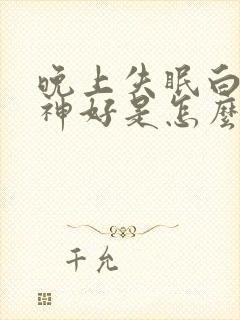 晚上失眠白
神好是怎麼
千允